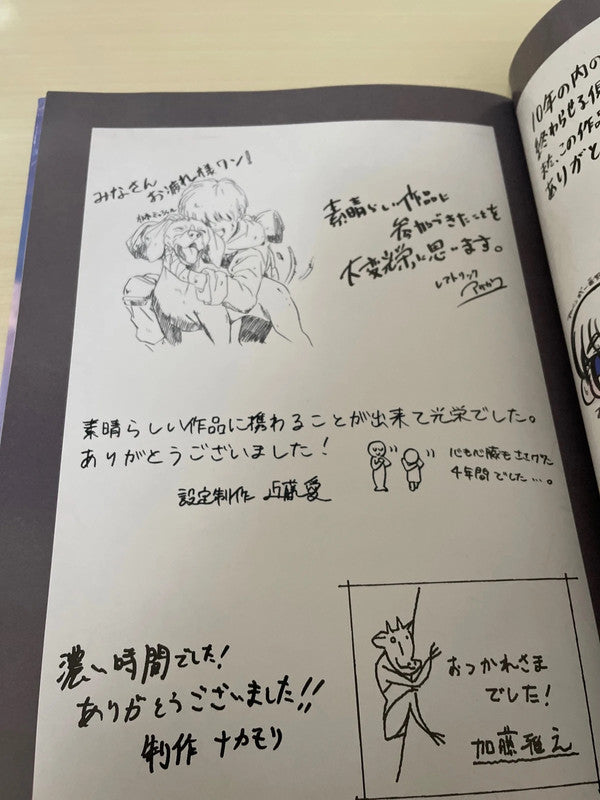 みなさん
お疲れ様ワン!
素晴らしい作品に
参加できたことを
大変光栄に思います。
レトリック
アサカワ
素晴らしい作品に携わることが出来て光栄でした。
ありがとうございました!
設定制作 近藤愛
心も心臓もささげた
4年間でした…。
濃い時間でした!
ありがとうございました!!
制作 ナカモリ
おつかれさま
でした!
加藤雅え
10年の内の
終わらせる
また、この作品
ありがと